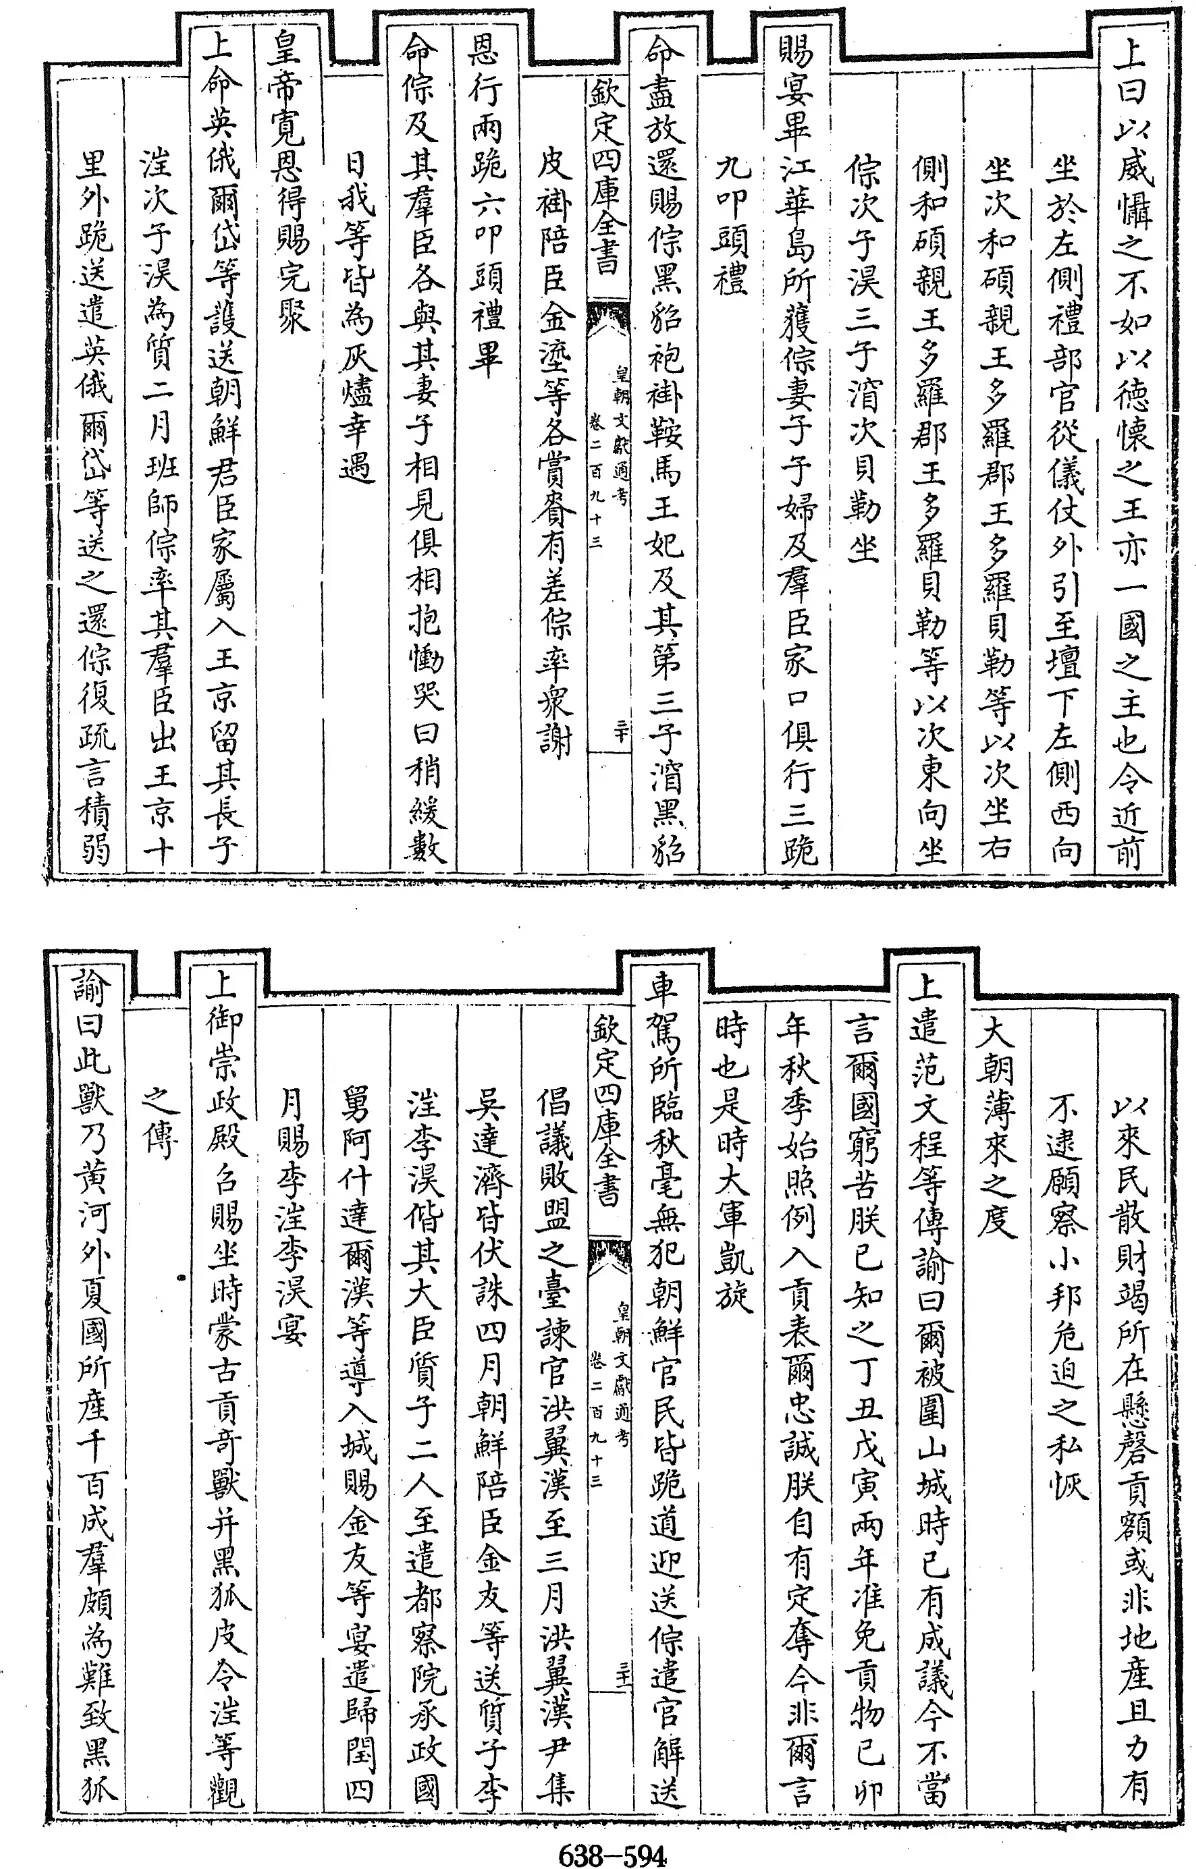 上曰以威懾之不如以徳懐之王亦一國之主也令近前
坐於左側禮部官從儀仗外引至壇下左側西向
坐次和碩親王多羅郡王多羅貝勒等以次坐右
側和碩親王多羅郡王多羅貝勒等以次東向坐
倧次子淏三子㴭次貝勒坐
賜宴畢江華島所獲倧妻子子婦及羣臣家口俱行三跪
九叩頭禮
命盡放還賜倧黑貂袍褂鞍馬王妃及其第三子㴭黑貂
欽定四庫全書
皇朝文獻通考
卷二百九十三
三十
皮褂陪臣金瑬等各賞賚有差倧率衆謝
恩行兩跪六叩頭禮畢
命倧及其羣臣各與其妻子相見俱相抱慟哭曰稍緩數
日我等皆為灰燼幸遇
皇帝寛恩得賜完聚
上命英俄爾岱等護送朝鮮君臣家屬入王京留其長子
𣳫次子淏為質二月班師倧率其羣臣出王京十
里外跪送遣英俄爾岱等送之還倧復疏言積弱
以來民散財竭所在懸磬貢額或非地産且力有
不逮願察小邦危迫之私恢
大朝薄來之度
上遣范文程等傳諭曰爾被圍山城時已有成議今不當
言爾國窮苦朕已知之丁丑戊寅兩年准免貢物已卯
年秋季始照例入貢表爾忠誠朕自有定奪今非爾言
時也是時大軍凱旋
車駕所臨秋毫無犯朝鮮官民皆跪道迎送倧遣官解送
欽定四庫全書
皇朝文獻通考
卷二百九十三
三十一
倡議敗盟之臺諫官洪翼漢至三月洪翼漢尹集
吳達濟皆伏誅四月朝鮮陪臣金友等送質子李
𣳫李淏偕其大臣質子二人至遣都察院承政國
舅阿什達爾漢等導入城賜金友等宴遣歸閏四
月賜李𣳫李淏宴
上御崇政殿召賜坐時蒙古貢奇獸并黑狐皮令𣳫等觀
之傳
諭曰此獸乃黄河外夏國所産千百成羣頗為難致黑狐
638-594